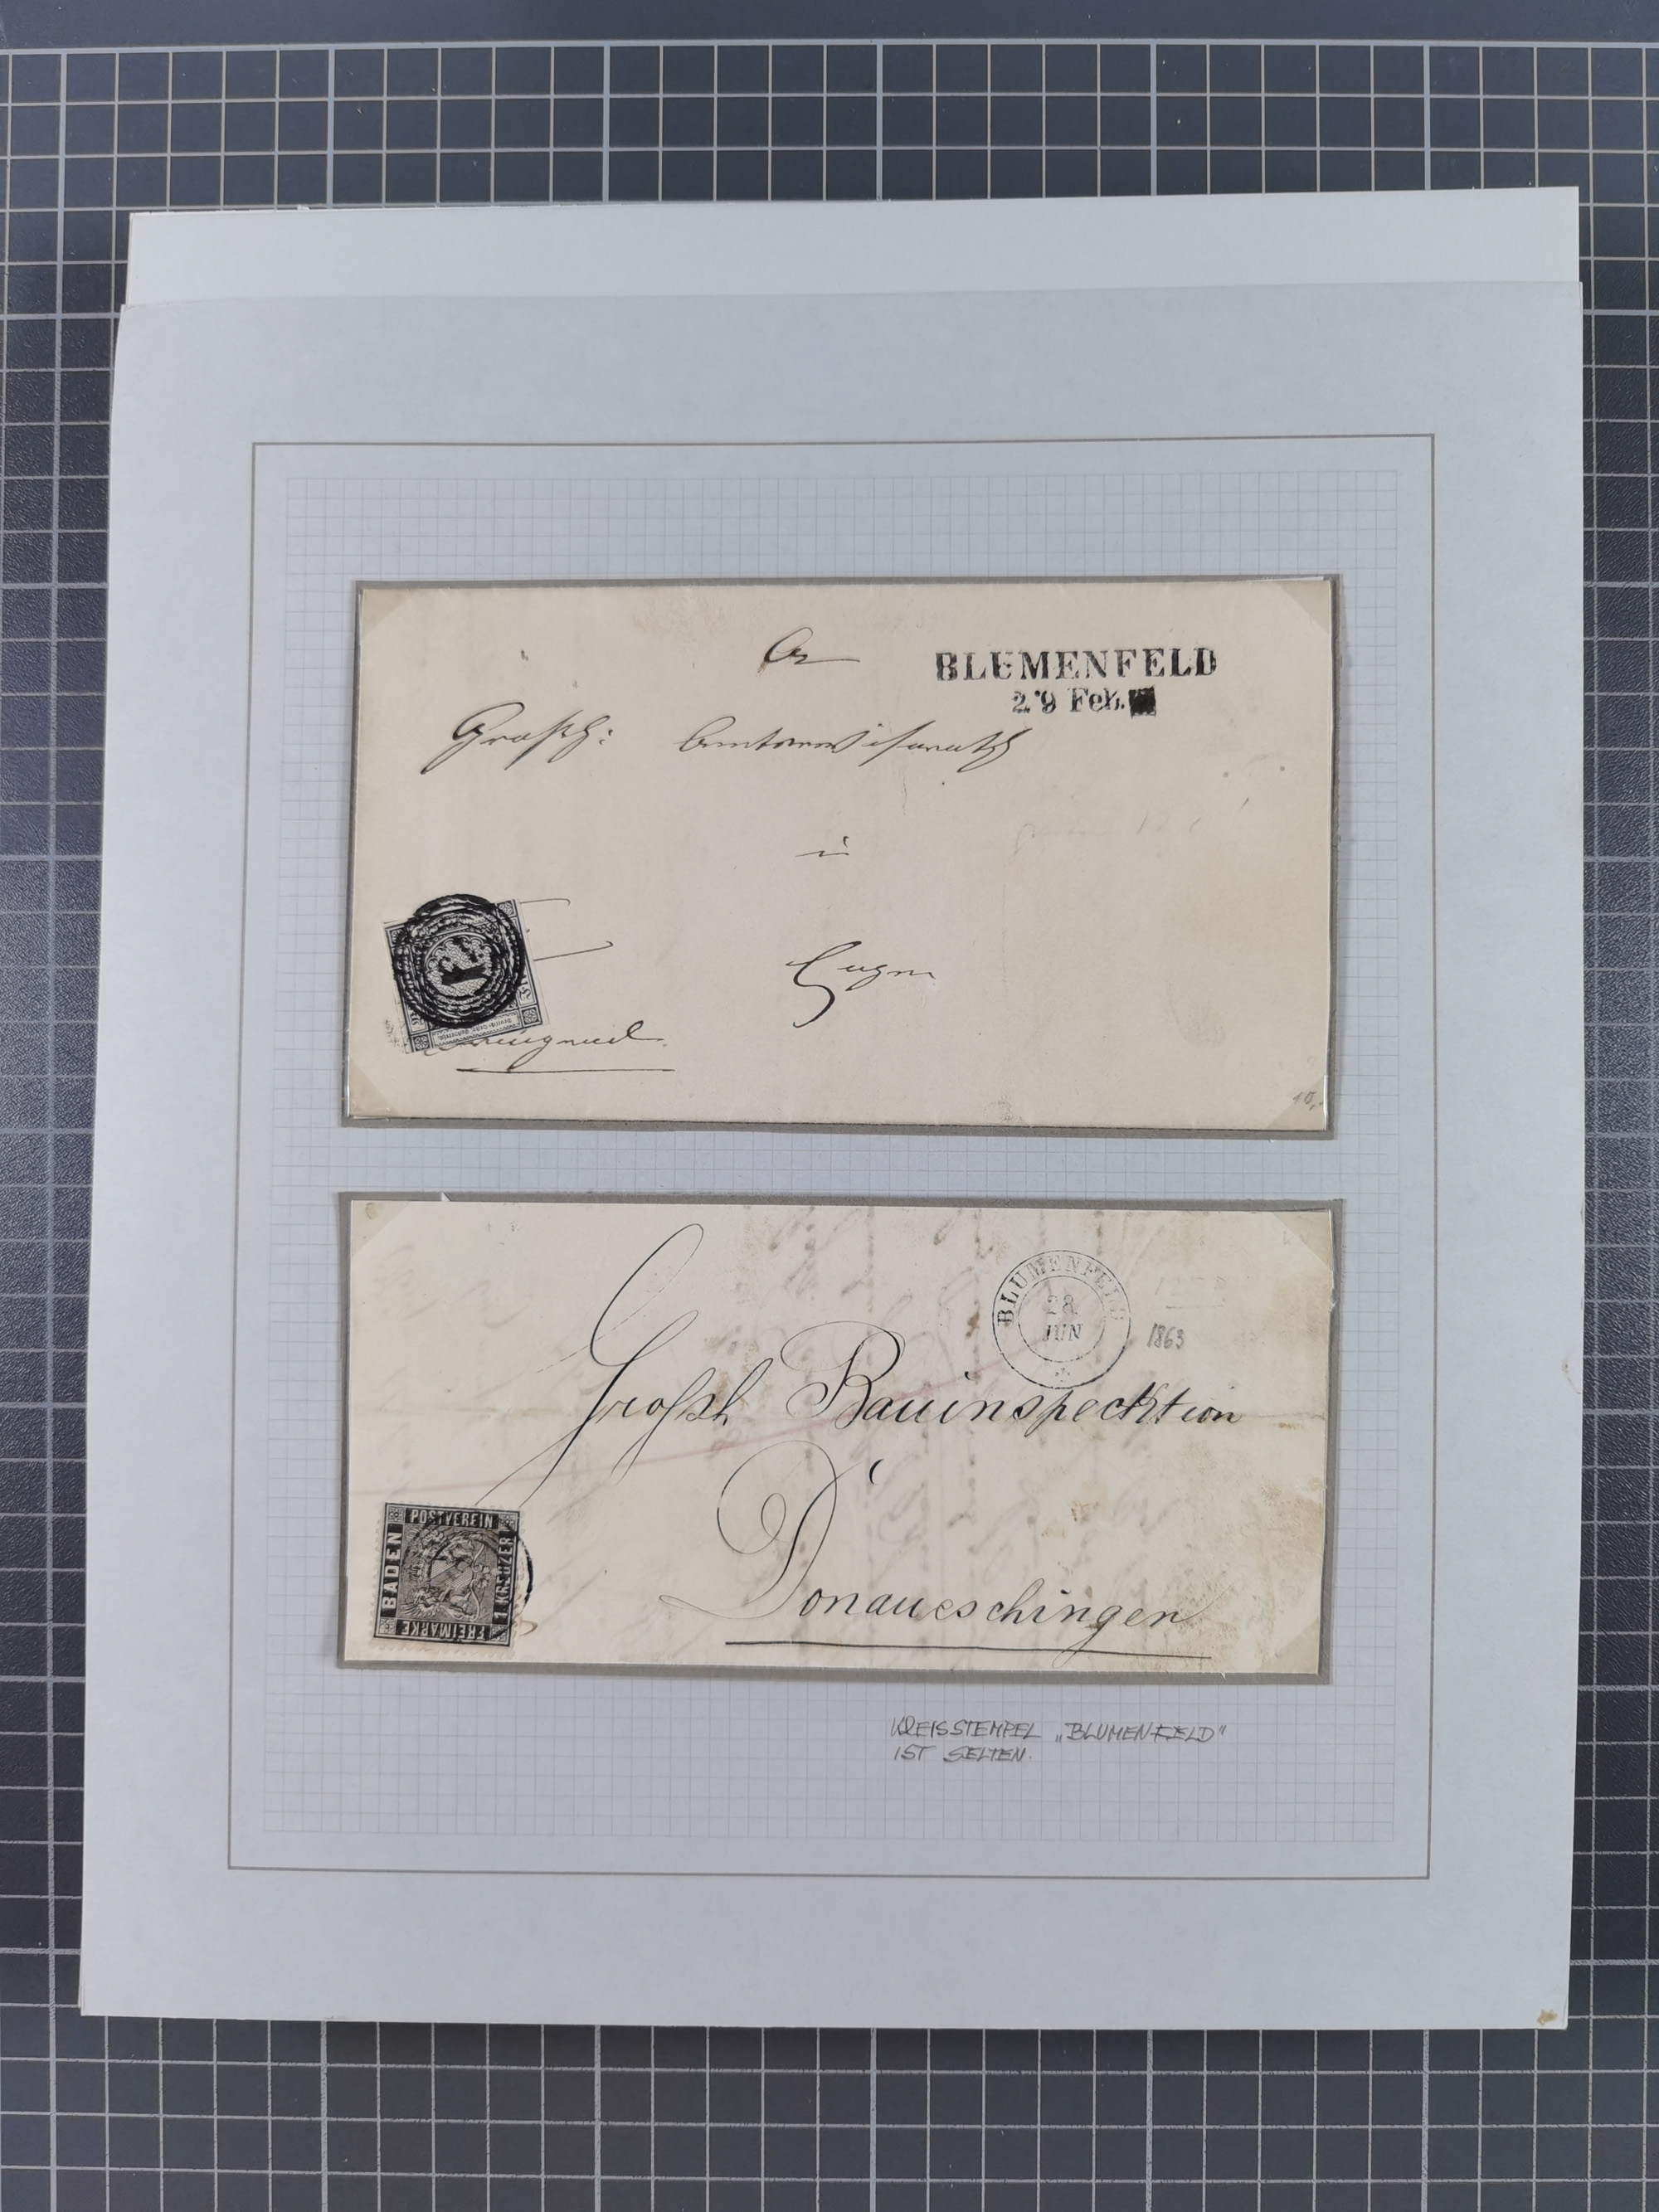 An
BLUMENFELD
29 Feb.
Großh:
in
10,-
BLUMENFELD
28
JUN
1863
Großh Bauinspecktion
Donaueschingen
POSTVEREIN
BADEN
1 KREUZER
FREIMARKE
KREISSTEMPEL „BLUMENFELD"
IST SELTEN.